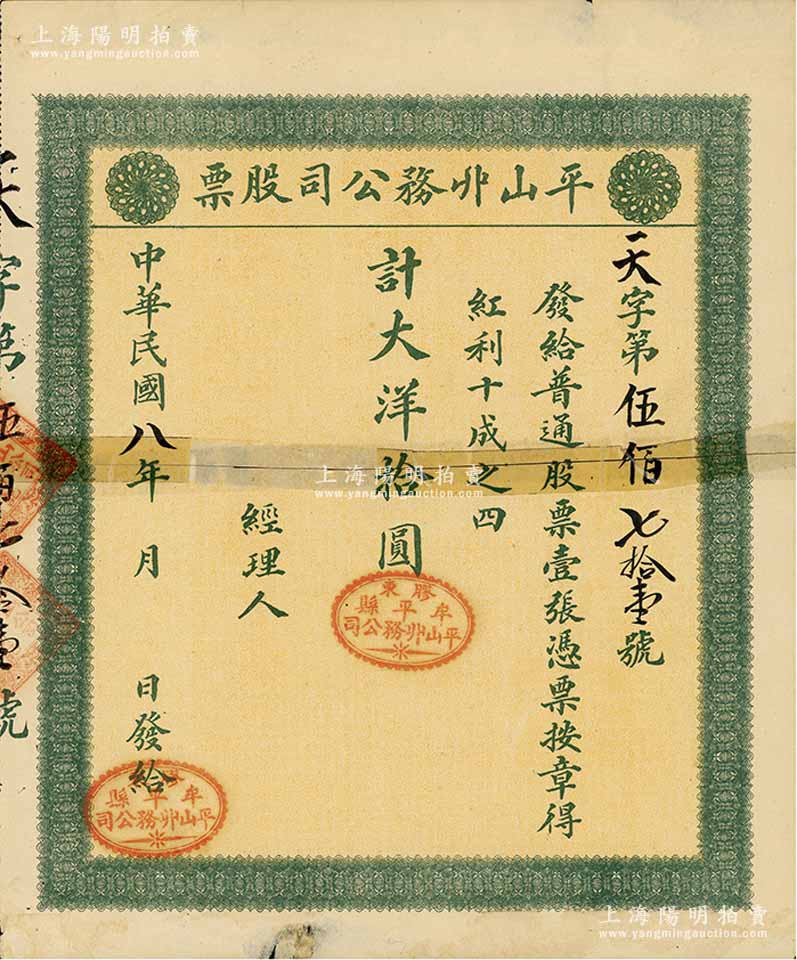 上海陽明拍賣
www.yangmingauction.com
平山丱務公司股票
天字第伍佰七拾壹號
發給普通股票壹張憑票按章得
紅利十成之四
計大洋拾圓
經理人
中華民國八年 月 日發給
膠東
牟平縣
平山丱務公司
牟平縣
平山丱務公司
天字第伍佰七拾壹號
上海陽明拍賣
www.yangmingauction.com
上海陽明拍賣
www.yangmingauction.com